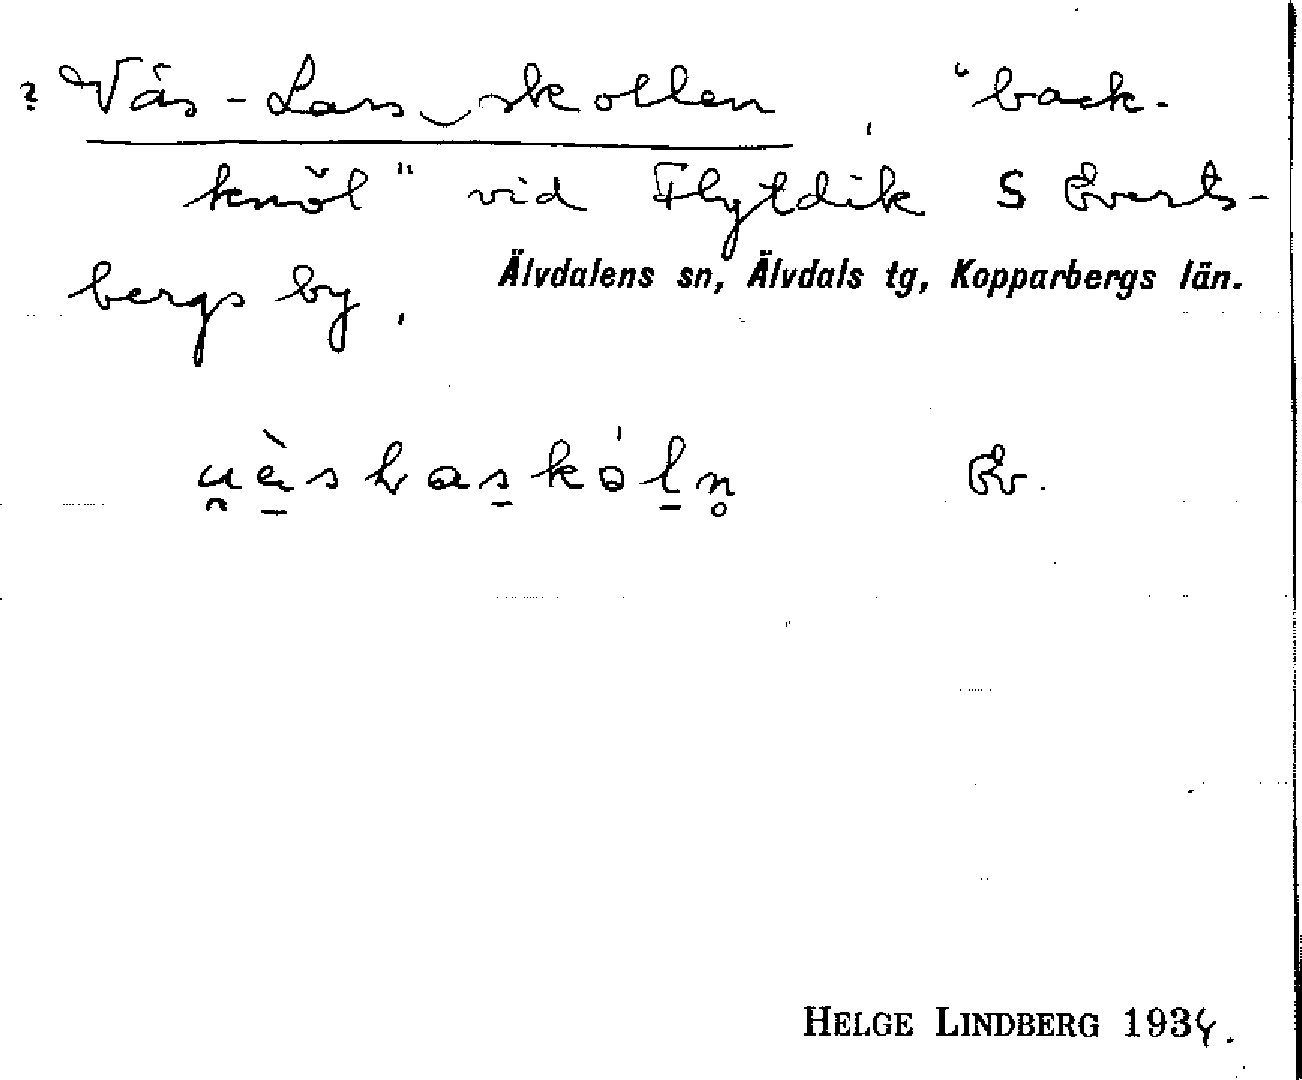 ? Väs-Lars‿skollen, "back-
knöl" vid Flytdik S Everts-
bergs by.
Älvdalens sn, Älvdals tg, Kopparbergs län.
Ev.
HELGE LINDBERG 1934.